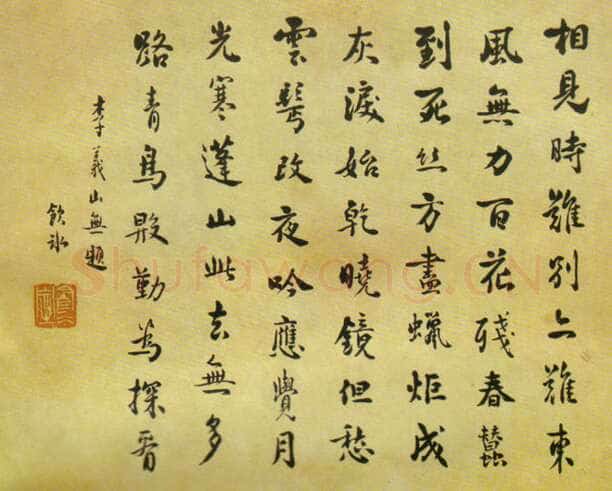 相見時難別亦難東
風無力百花殘春蠶
到死絲方盡蠟炬成
灰淚始乾曉鏡但愁
雲鬢改夜吟應覺月
光寒蓬山此去無多
路青鳥殷勤為探看
李義山無題
飲冰
Shufawang.CN